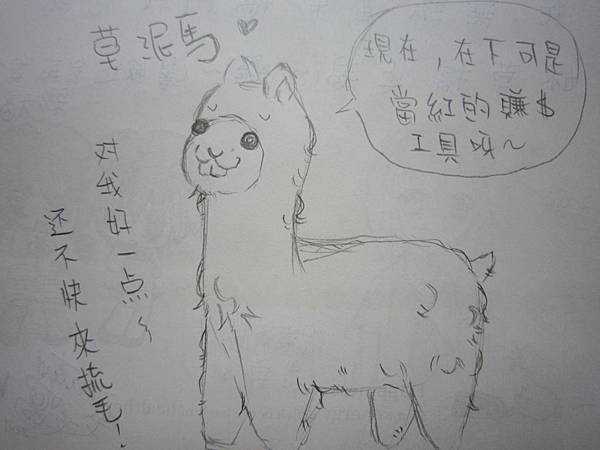 草泥馬
現在，在下可是
當紅的賺$
工具呀～
对我好一点～
还不快來梳毛！